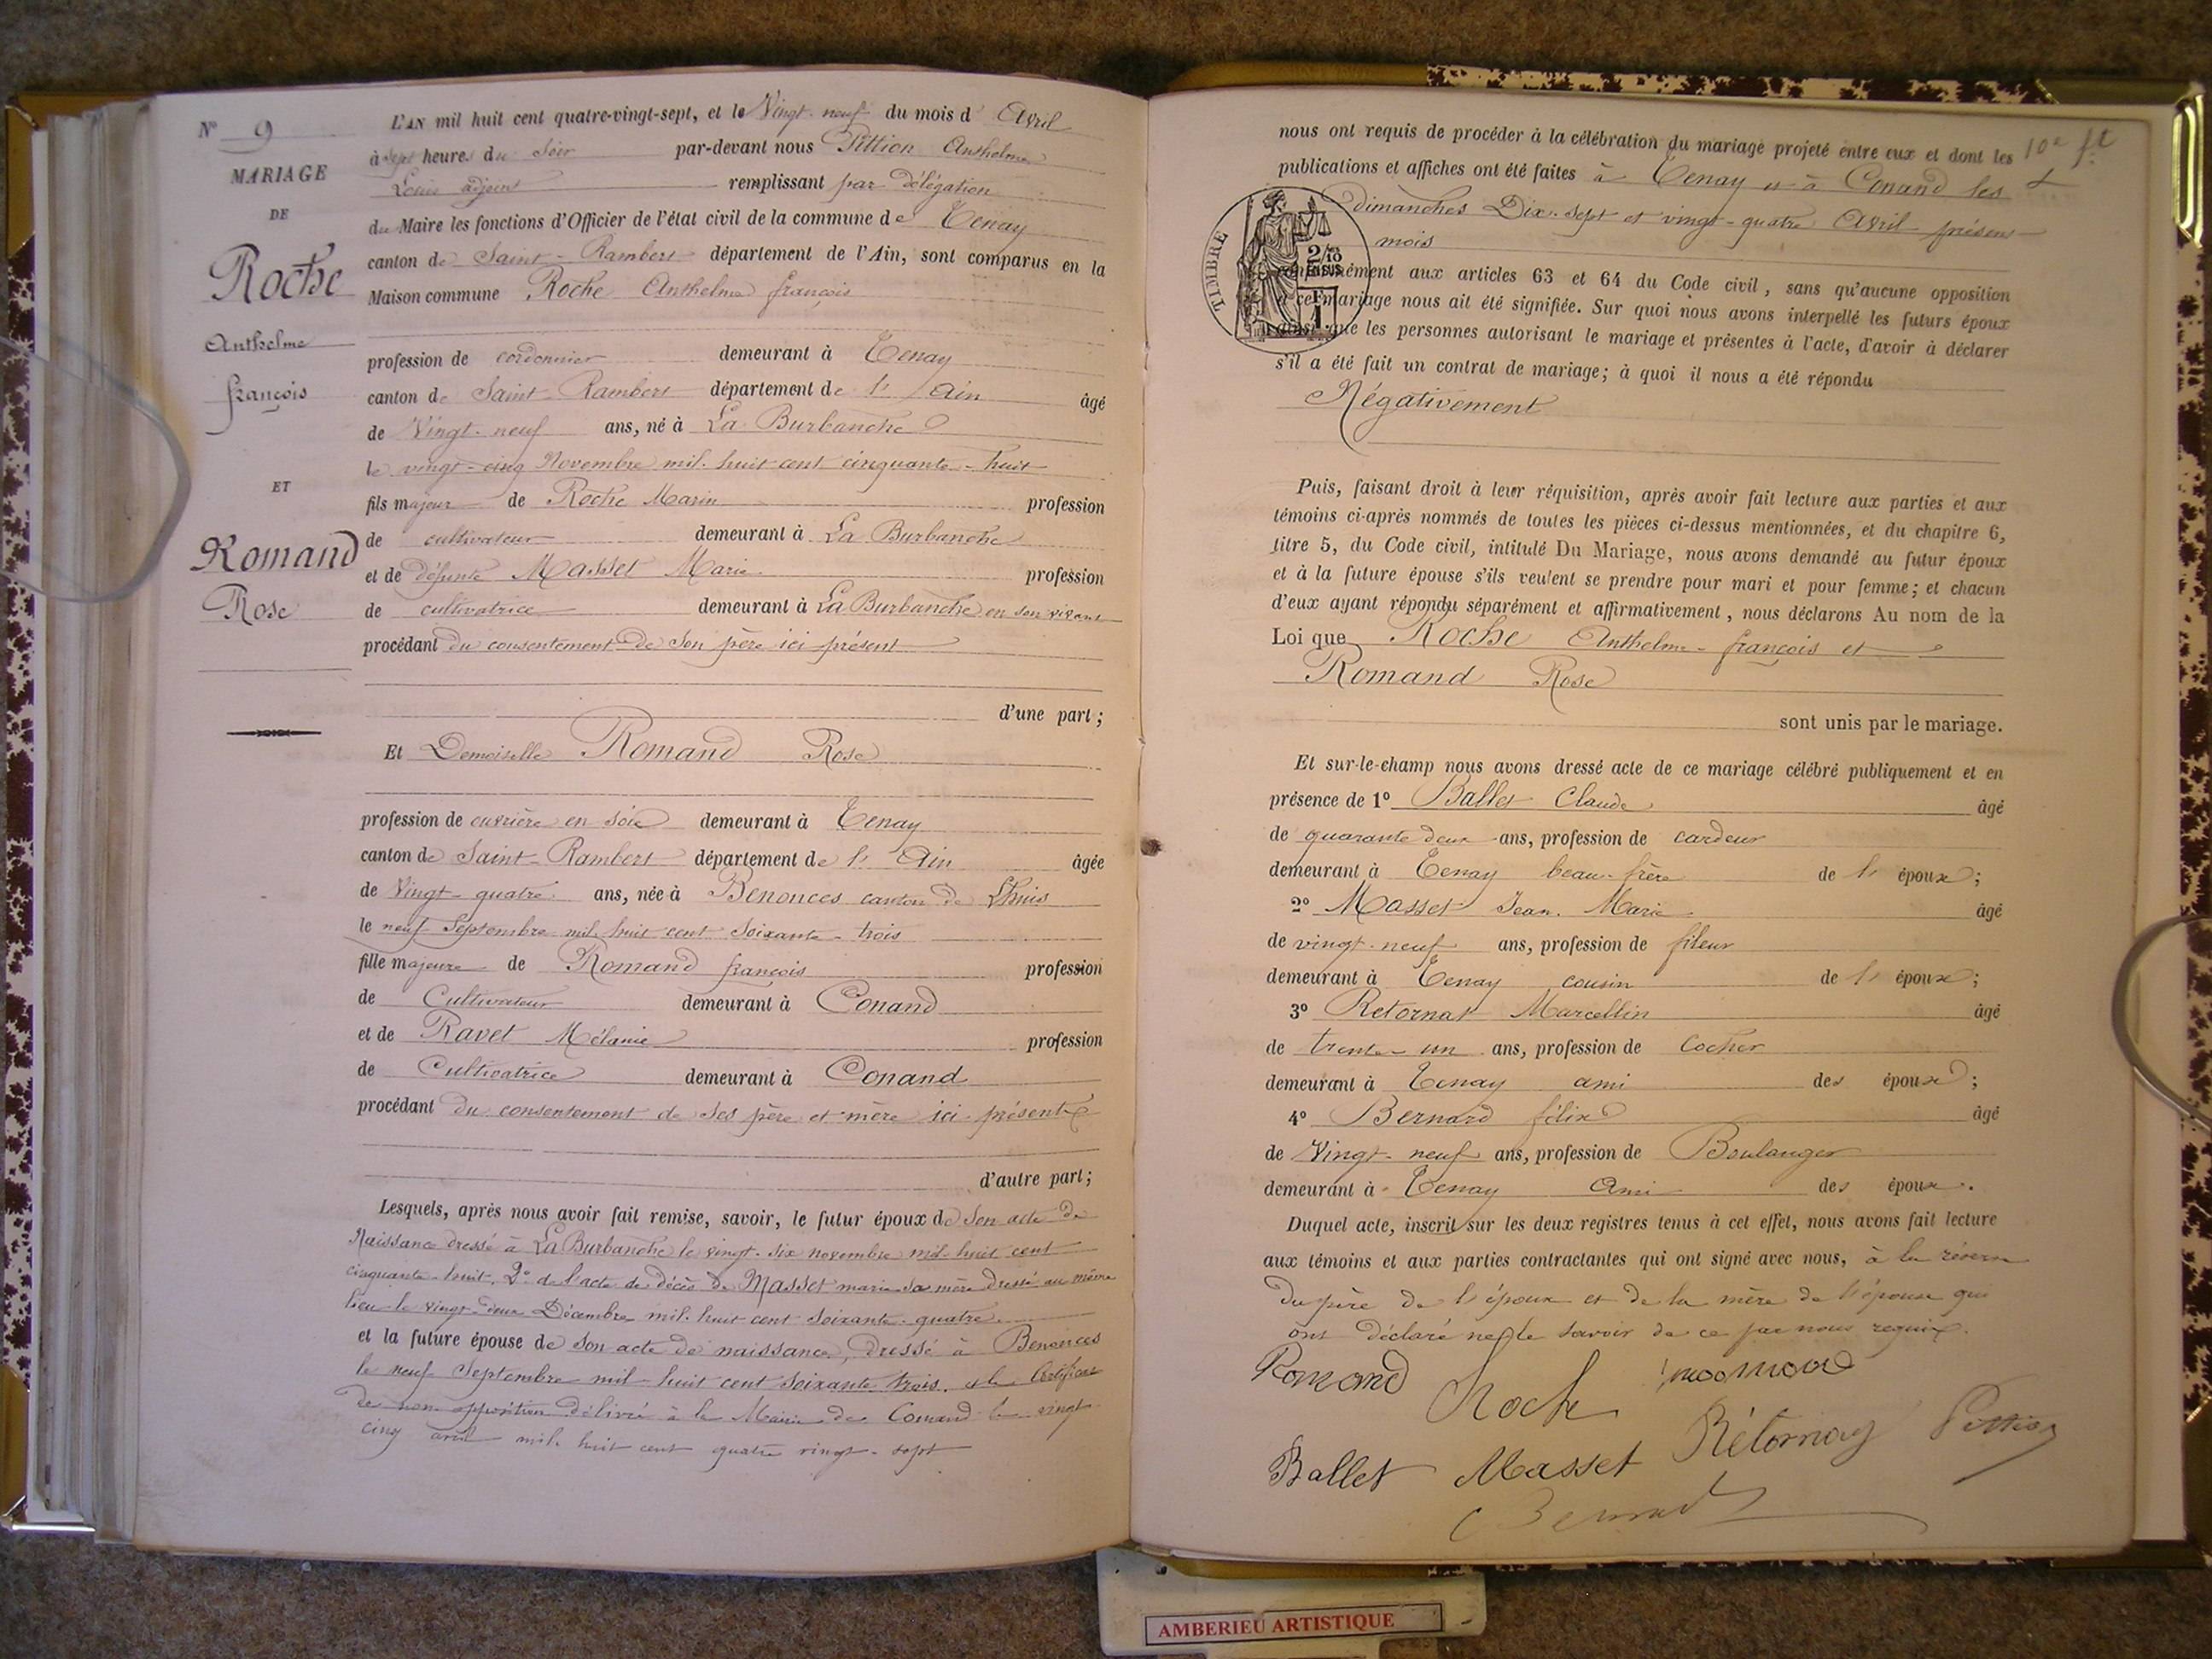 N° 9
MARIAGE
DE
Roche
Anthelme
françois
ET
Romand
Rose
L'AN mil huit cent quatre-vingt-sept, et le Vingt-neuf du mois d' Avril
à sept heures du Soir par-devant nous Pittion Anthelme
Louis adjoint remplissant par délégation
du Maire les fonctions d'Officier de l'état civil de la commune de Tenay
canton de Saint-Rambert département de l'Ain, sont comparus en la
Maison commune Roche Anthelme françois
profession de cordonnier demeurant à Tenay
canton de Saint-Rambert département de l'Ain âgé
de Vingt-neuf ans, né à La Burbanche
le vingt-cinq Novembre mil huit cent cinquante-huit
fils majeur de Roche Marin profession
de cultivateur demeurant à La Burbanche
et de défunte Masset Marie profession
de cultivatrice demeurant à La Burbanche en son vivant
procédant du consentement de Son père ici présent
d'une part ;
Et Demoiselle Romand Rose
profession de ouvrière en soie demeurant à Tenay
canton de Saint-Rambert département de l'Ain âgée
de Vingt-quatre ans, née à Benonces canton de Lhuis
le neuf Septembre mil huit cent Soixante-trois
fille majeure de Romand françois profession
de Cultivateur demeurant à Conand
et de Ravet Mélanie profession
de Cultivatrice demeurant à Conand
procédant du consentement de Ses père et mère ici présents
d'autre part ;
Lesquels, après nous avoir fait remise, savoir, le futur époux de Son acte de
Naissance dressé à La Burbanche le vingt-six novembre mil huit cent
cinquante-huit. 2° de l'acte de décès de Masset marie sa mère dressé au même
lieu le vingt-deux Décembre mil huit cent soixante-quatre.
et la future épouse de son acte de naissance, dressé à Benonces
le neuf Septembre mil huit cent soixante trois. et le Certificat
de non opposition délivré à la Mairie de Conand le vingt
cinq avril mil huit cent quatre vingt-sept
nous ont requis de procéder à la célébration du mariage projeté entre eux et dont les
publications et affiches ont été faites à Tenay et à Conand les
dimanches Dix-sept et vingt-quatre Avril présent
mois
TIMBRE
2/10
EN SUS
1F
conformément aux articles 63 et 64 du Code civil, sans qu'aucune opposition
à ce mariage nous ait été signifiée. Sur quoi nous avons interpellé les futurs époux
ainsi que les personnes autorisant le mariage et présentes à l'acte, d'avoir à déclarer
s'il a été fait un contrat de mariage ; à quoi il nous a été répondu
Négativement
Puis, faisant droit à leur réquisition, après avoir fait lecture aux parties et aux
témoins ci-après nommés de toutes les pièces ci-dessus mentionnées, et du chapitre 6,
titre 5, du Code civil, intitulé Du Mariage, nous avons demandé au futur époux
et à la future épouse s'ils veulent se prendre pour mari et pour femme ; et chacun
d'eux ayant répondu séparément et affirmativement, nous déclarons Au nom de la
Loi que Roche Anthelme-françois et
Romand Rose
sont unis par le mariage.
Et sur-le-champ nous avons dressé acte de ce mariage célébré publiquement et en
présence de 1° Ballet Claude âgé
de quarante deux ans, profession de cardeur
demeurant à Tenay beau-frère de l' époux ;
2° Masset Jean-Marie âgé
de vingt-neuf ans, profession de fileur
demeurant à Tenay cousin de l' époux ;
3° Retornat Marcellin âgé
de trente-un ans, profession de Cocher
demeurant à Tenay ami des époux ;
4° Bernard félix âgé
de Vingt-neuf ans, profession de Boulanger
demeurant à Tenay Ami des époux.
Duquel acte, inscrit sur les deux registres tenus à cet effet, nous avons fait lecture
aux témoins et aux parties contractantes qui ont signé avec nous, à la réserve
du père de l'époux et de la mère de l'épouse qui
ont déclaré ne le savoir de ce par nous requis.
Romand Roche
Ballet Masset Rétornay Pittion
Bernard
AMBERIEU ARTISTIQUE